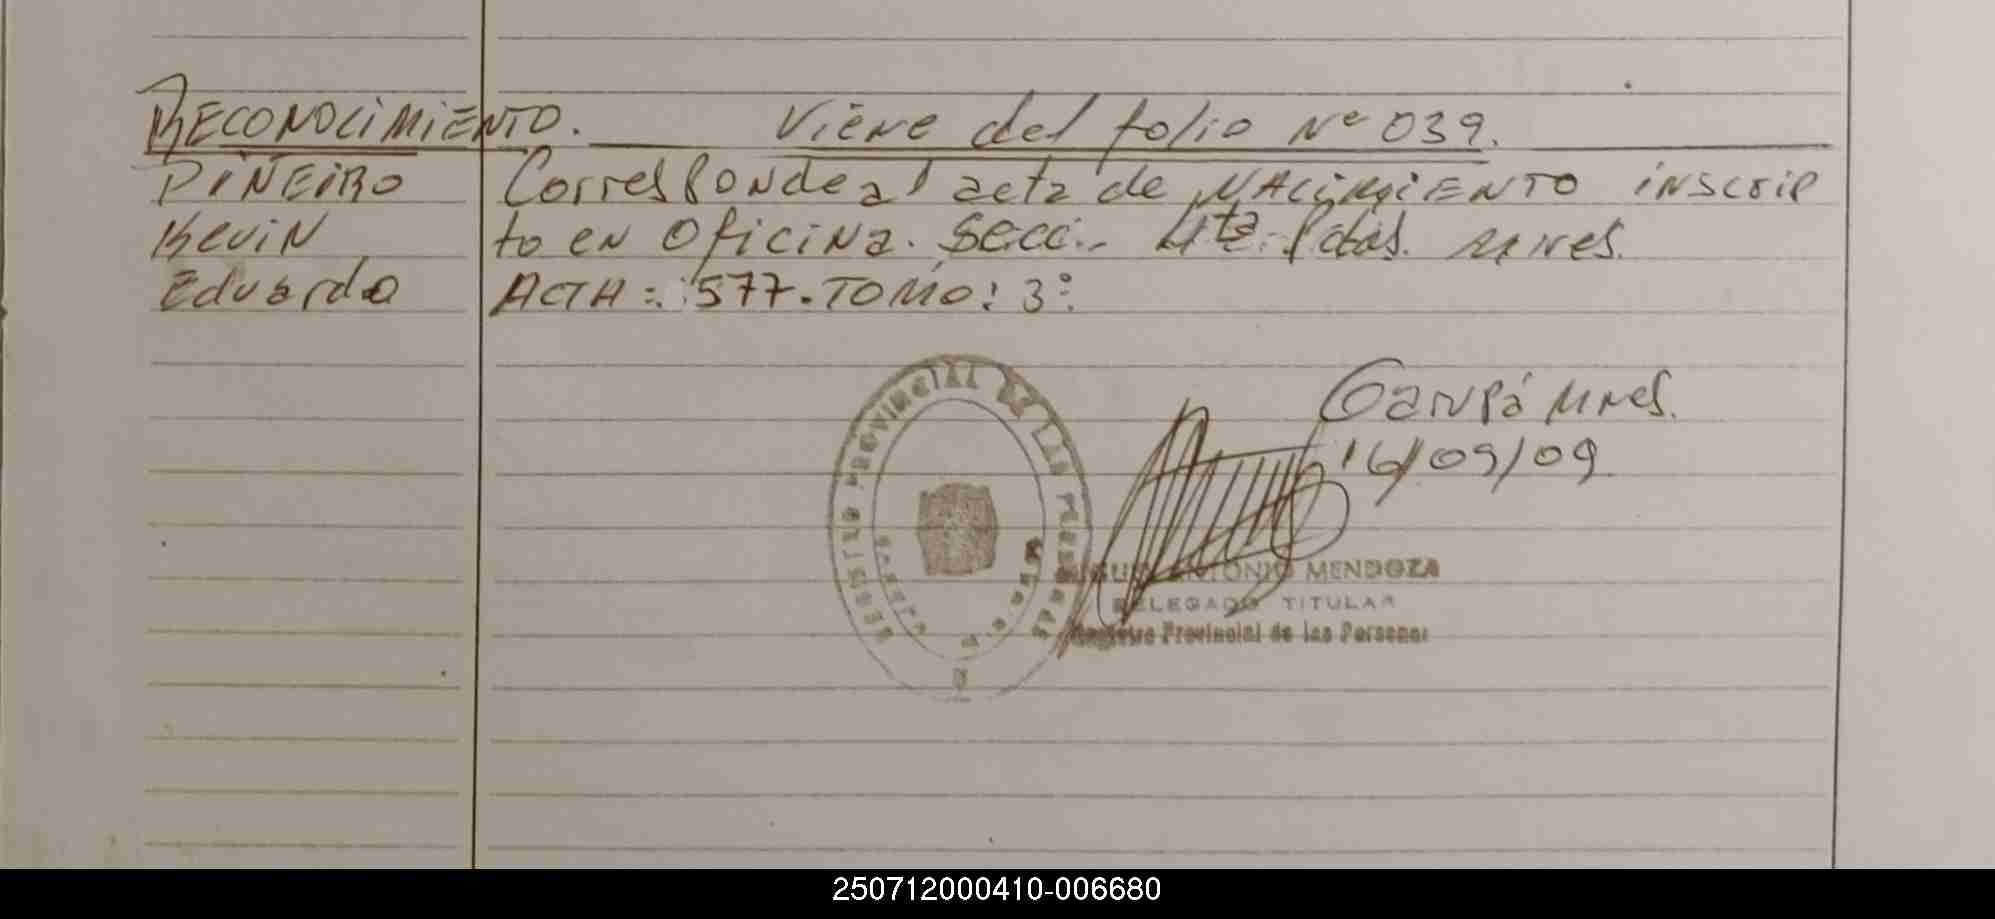 RECONOCIMIENTO. Viene del folio Nº 039.
PIÑEIRO Corresponde al acta de NACIMIENTO inscrip
Kevin to en Oficina. Secc.. 4ta. Pdas. Mnes.
Eduardo ACTA: 577. TOMO: 3º.
Garupá Mnes.
16/09/09
REGISTRO PROVINCIAL DE LAS PERSONAS
ANTONIO MENDOZA
DELEGADO TITULAR
Registro Provincial de las Personas
250712000410-006680